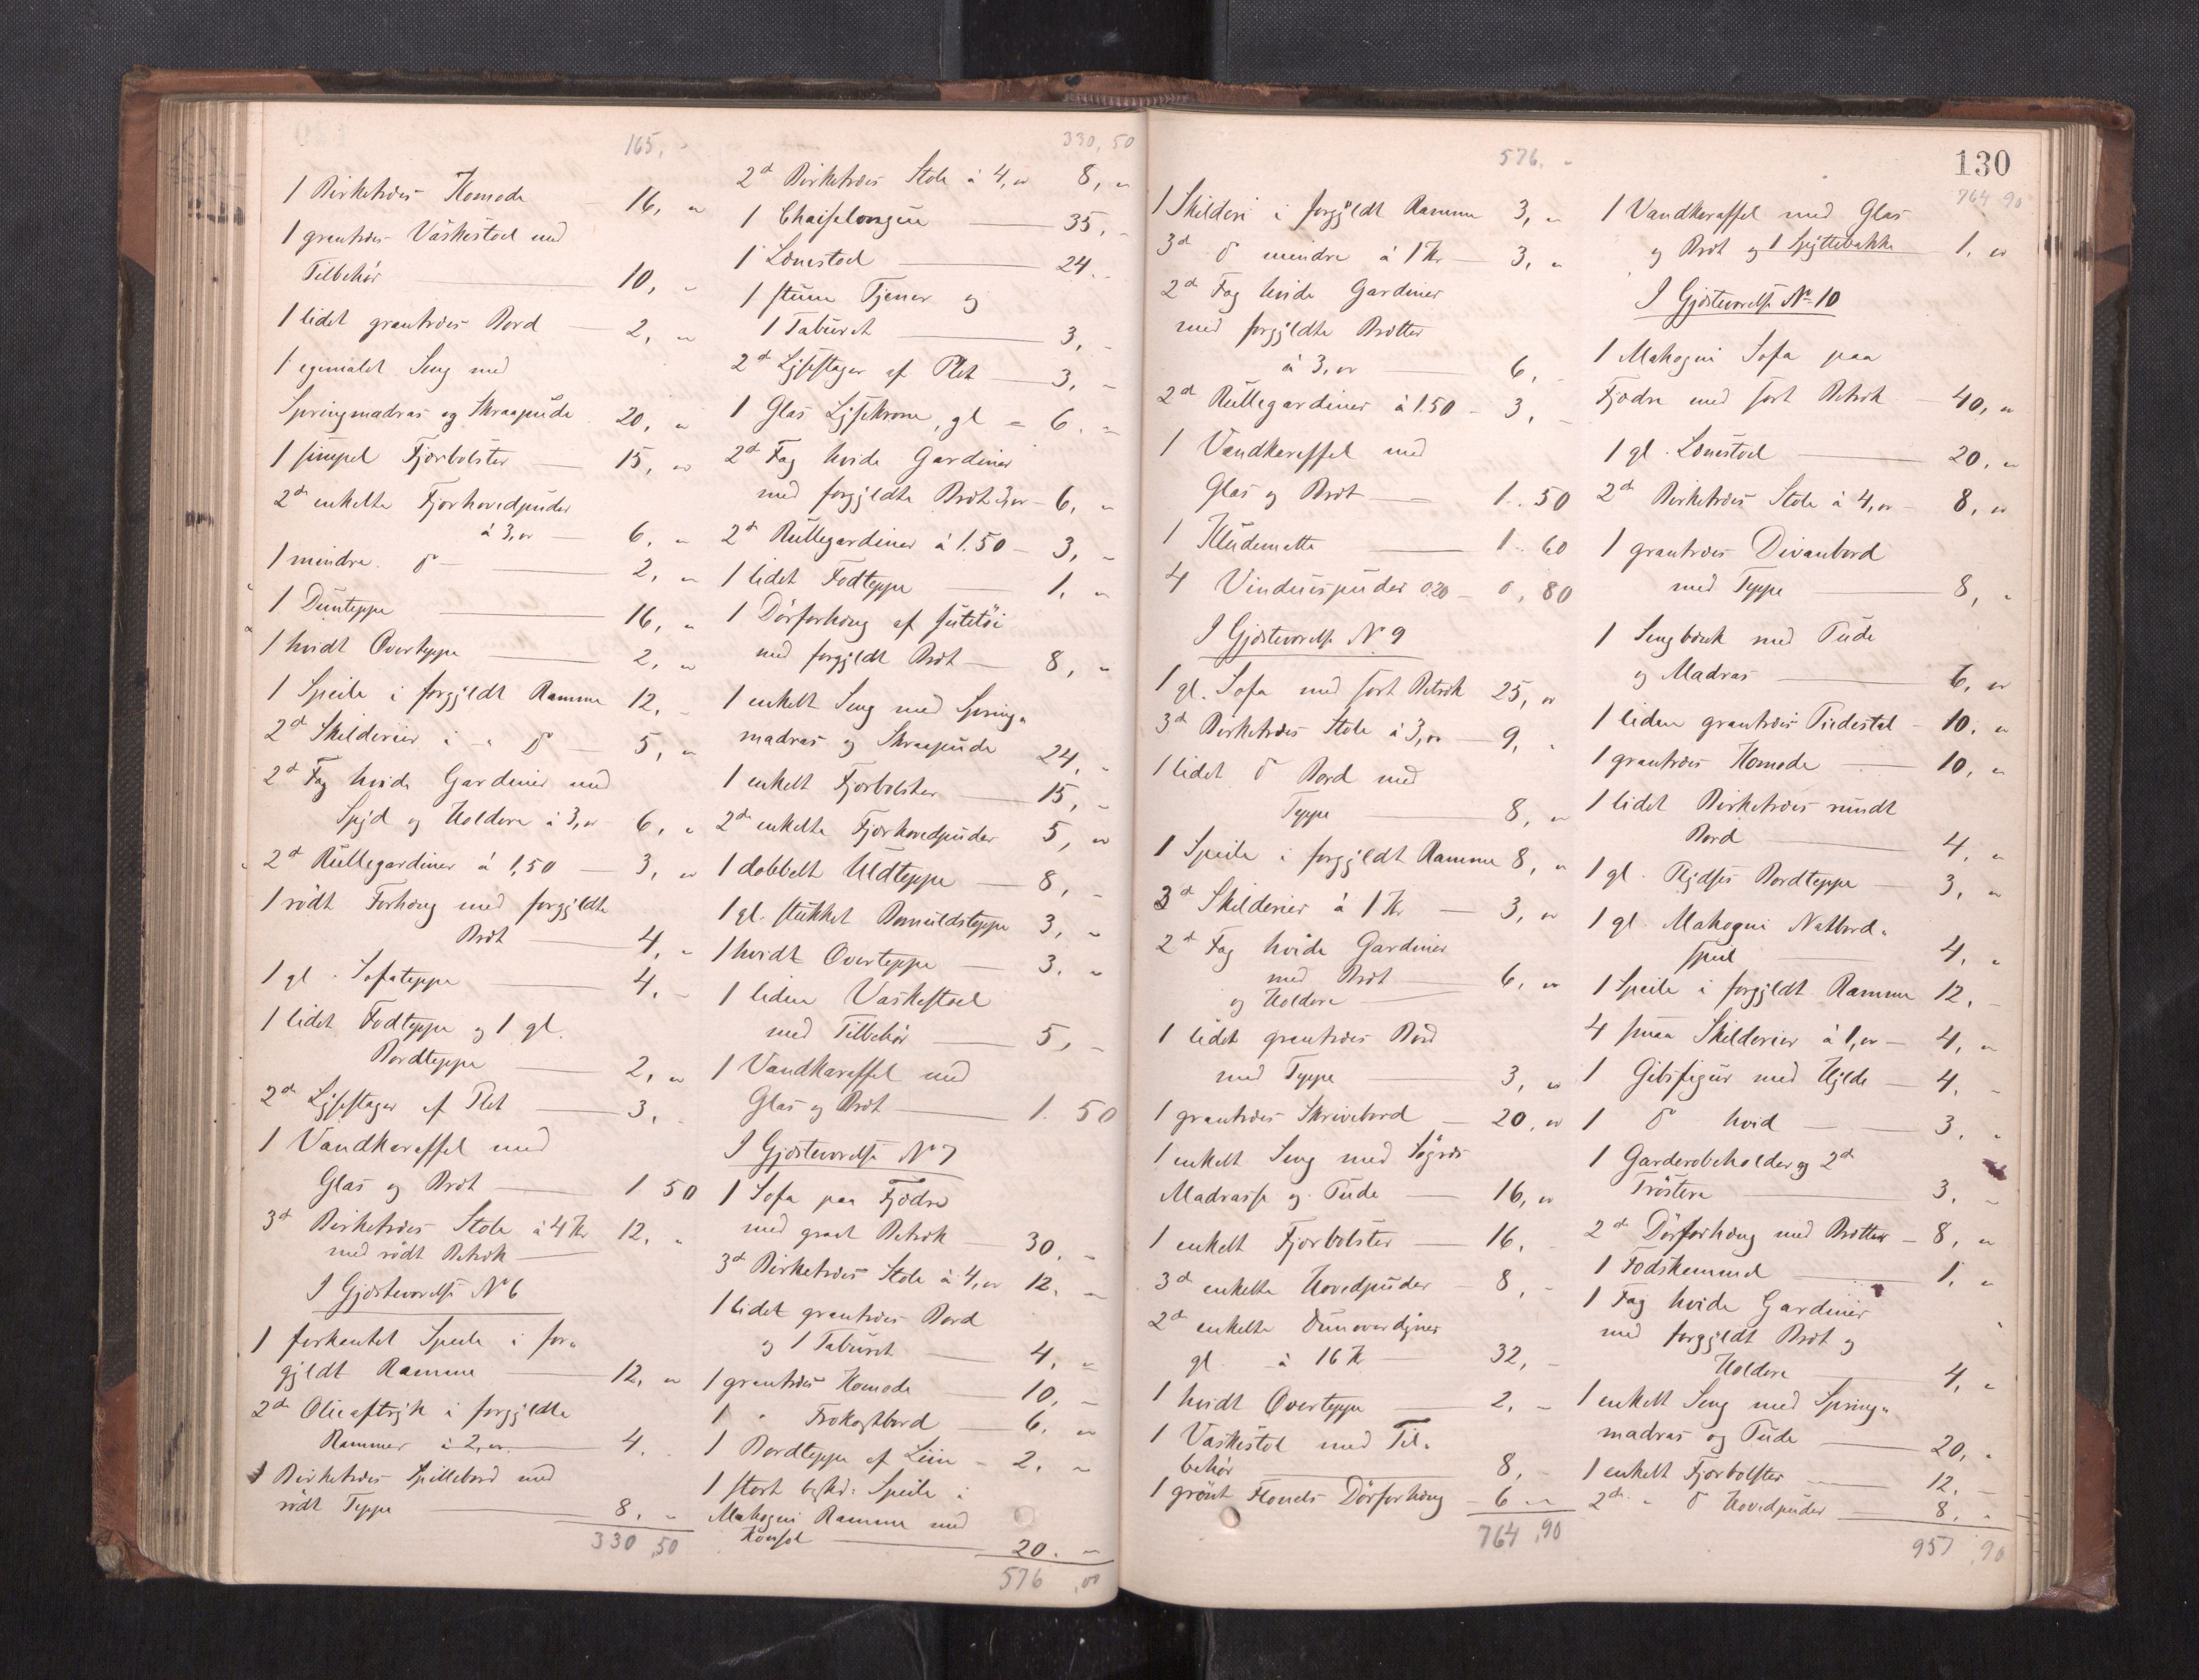 165, "
1 Birketræs Komode 16, "
1 grantræs Vaskestoel med
Tilbehör 10, "
1 lidet grantræs Bord 2, "
1 egemalet Seng med
Springmadras og Skraapude 20, "
1 simpel Fjærbolster 15, "
2de enkelte Fjærhovedpuder
à 3,00 6, "
1 mindre do 2, "
1 Dunteppe 16, "
1 hvidt Overteppe 2, "
1 Speile i forgyldt Ramme 12, "
2de Skilderier i " do 5, "
2de Fag hvide Gardiner med
Spyd og Holdere à 3,00 6, "
2de Rullegardiner à 1,50 3, "
1 rödt Forhæng med forgyldte
Bræt 4, "
1 gl. Sofateppe 4, "
1 lidet Fodteppe og 1 gl.
Bordteppe 2, "
2de Lysestager af Plet 3, "
1 Vandkaraffel med
Glas og Bræt 1 50
3de Birketræs Stole à 4 Kr 12, "
med rödt Betræk
I Gjæsteværelse No 6
1 firkantet Speile i for"
gyldt Ramme 12, "
2de Olieaftryk i forgyldte
Rammer à 2,00 4. "
1 Birketræs Spillebord med
rödt Teppe 8, "
330,50
330,50
2de Birketræs Stole à 4,00 8, "
1 Chaiselongue 35, "
1 Lænestoel 24. "
1 stum Tjener og
1 Taburet 3, "
2de Lysestager af Plet 3, "
1 Glas Lysekrone, gl 6. "
2de Fag hvide Gardiner
med forgyldte Bræt à 3,00 6, "
2de Rullegardiner à 1.50 3, "
1 lidet Fodteppe 1, "
1 Dörforhæng af Jutetöi
med forgyldt Bræt 8, "
1 enkelt Seng med Spring"
madras og Skraapude 24, "
1 enkelt Fjærbolster 15, "
2de enkelte Fjærhovedpuder 5, "
1 dobbelt Uldteppe 8, "
1 gl. stukket Bomuldsteppe 3, "
1 hvidt Overteppe 3. "
1 liden Vaskestoel
med Tilbehör 5, "
1 Vandkaraffel med
Glas og Bræt 1. 50
I Gjæsteværelse No 7
1 Sofa paa Fjædre
med graat Betræk 30, "
3de Birketræs Stole à 4,00 12. "
1 lidet grantræs Bord
og 1 Taburet 4, "
1 grantræs Komode 10, "
1 " Frokostbord 6. "
1 Bordteppe af Liin 2. "
1 stort Speile i
Mahogni Ramme med
Konsol 20. "
576,00
576. "
1 Skilderi i forgyldt Ramme 3, "
3de do mindre à 1 Kr 3, "
2de Fag hvide Gardiner
med forgyldte Brætter
à 3,00 6, "
2de Rullegardiner à 1.50 3, "
1 Vandkaraffel med
Glas og Bræt 1. 50
1 Kludematte 1. 60
4 Vinduespuder 0.20 0,80
I Gjæsteværelse No 9
1 gl. Sofa med sort Betræk 25, "
3de Birketræs Stole à 3,00 9, "
1 lidet do Bord med
Teppe 8, "
1 Speile i forgyldt Ramme 8, "
3de Skilderier à 1 Kr 3, "
2de Fag hvide Gardiner
med Bræt
og Holdere 6, "
1 lidet grantræs Bord
med Teppe 3, "
1 grantræs Skrivebord 20, "
1 enkelt Seng med Sögræs
Madrasse og Pude 16, "
1 enkelt Fjærbolster 16, "
3de enkelte Hovedpuder 8, "
2de enkelte Dunoverdyner
gl. à 16 Kr 32, "
1 hvidt Overteppe 2, "
1 Vaskestol med Til"
behör 8, "
1 grönt Flonels Dörforhæng 6 "
764,90
130
764 90
1 Vandkaraffel med Glas
og Bræt og 1 Spyttebakke 1. "
I Gjæsteværelse No 10
1 Mahogni Sofa paa
Fjædre med sort Betræk 40, "
1 gl. Lænestoel 20. "
2de Birketræs Stole à 4,00 8, "
1 grantræs Divanbord
med Teppe 8, "
1 Sengbænk med Pude
og Madras 6, "
1 liden grantræs Piedestal 10. "
1 grantræs Komode 10, "
1 lidet Birketræs rundt
Bord 4, "
1 gl. Plydses Bordteppe 3, "
1 gl. Mahogni Natbord"
speil 4, "
1 Speile i forgyldt Ramme 12, "
4 smaa Skilderier à 1,00 4, "
1 Gibsfigur med Hylde 4, "
1 do hvid 3. "
1 Garderobeholder og 2de
Tröstere 3. "
2de Dörforhæng med Brætter 8, "
1 Fodskammel 1, "
1 Fag hvide Gardiner
med forgyldt Bræt og
Holdere 4, "
1 enkelt Seng med Spring"
madras og Pude 20, "
1 enkelt Fjærbolster 12. "
2de " do Hovedpuder 8, "
957,90